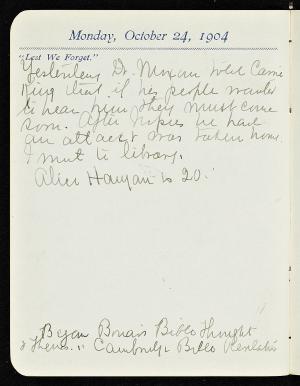 Monday, October 24, 1904
"Lest We Forget."
Yesterday Dr. Moxom told Carrie
King that if his people wanted
to hear him they must come
soon. After Vespers he had
an attack & was taken home.
I went to library.
Alice Hanyan is 20.
Began Bible Thought
& Theirs. " Cambridge Bible